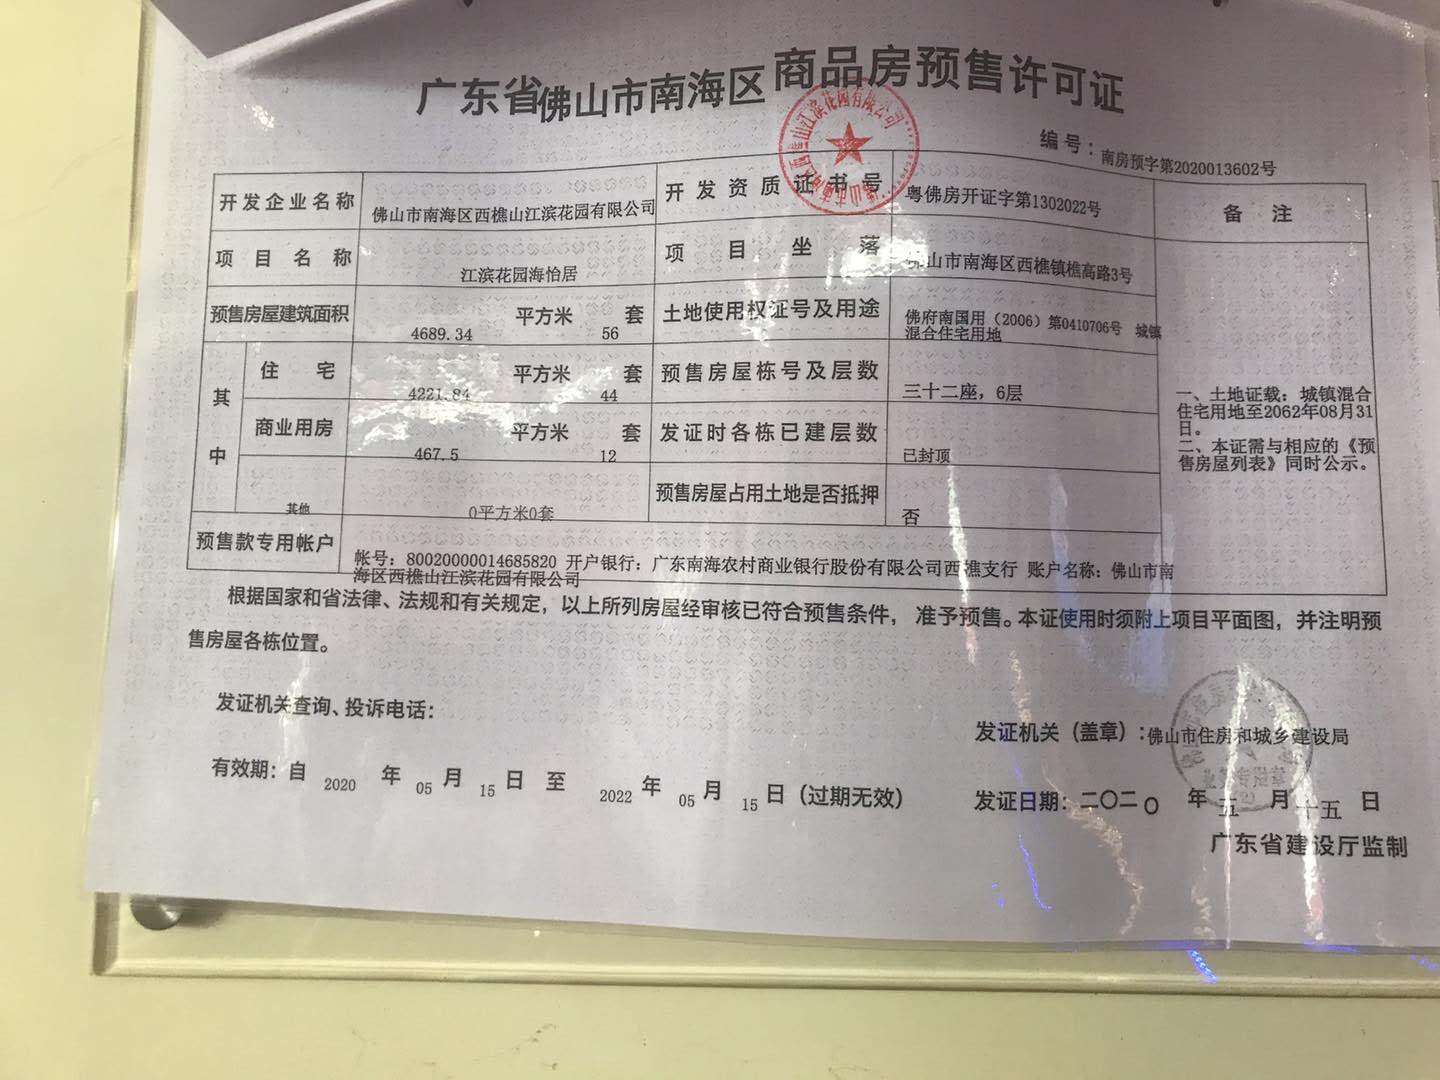 广东省佛山市南海区商品房预售许可证
编号：南房预字第2020013602号
开发企业名称 佛山市南海区西樵山江滨花园有限公司 开发资质证书号 粤佛房开证字第1302022号 备注
项目名称 江滨花园海怡居 项目坐落 佛山市南海区西樵镇樵高路3号
预售房屋建筑面积 4689.34 平方米 56 套 土地使用权证号及用途 佛府南国用（2006）第0410706号 城镇
混合住宅用地
其中
住宅 4221.84 平方米 44 套 预售房屋栋号及层数 三十二座，6层
商业用房 467.5 平方米 12 套 发证时各栋已建层数 已封顶
其他 0平方米0套 预售房屋占用土地是否抵押 否
一、土地证载：城镇混合
住宅用地至2062年08月31
日。
二、本证需与相应的《预
售房屋列表》同时公示。
预售款专用帐户 帐号：80020000014685820 开户银行：广东南海农村商业银行股份有限公司西樵支行 账户名称：佛山市南
海区西樵山江滨花园有限公司
根据国家和省法律、法规和有关规定，以上所列房屋经审核已符合预售条件，准予预售。本证使用时须附上项目平面图，并注明预
售房屋各栋位置。
发证机关查询、投诉电话：
发证机关（盖章）：佛山市住房和城乡建设局
有效期：自 2020 年 05 月 15 日 至 2022 年 05 月 15 日（过期无效）
发证日期：二〇二〇 年 五 月 十五 日
广东省建设厅监制